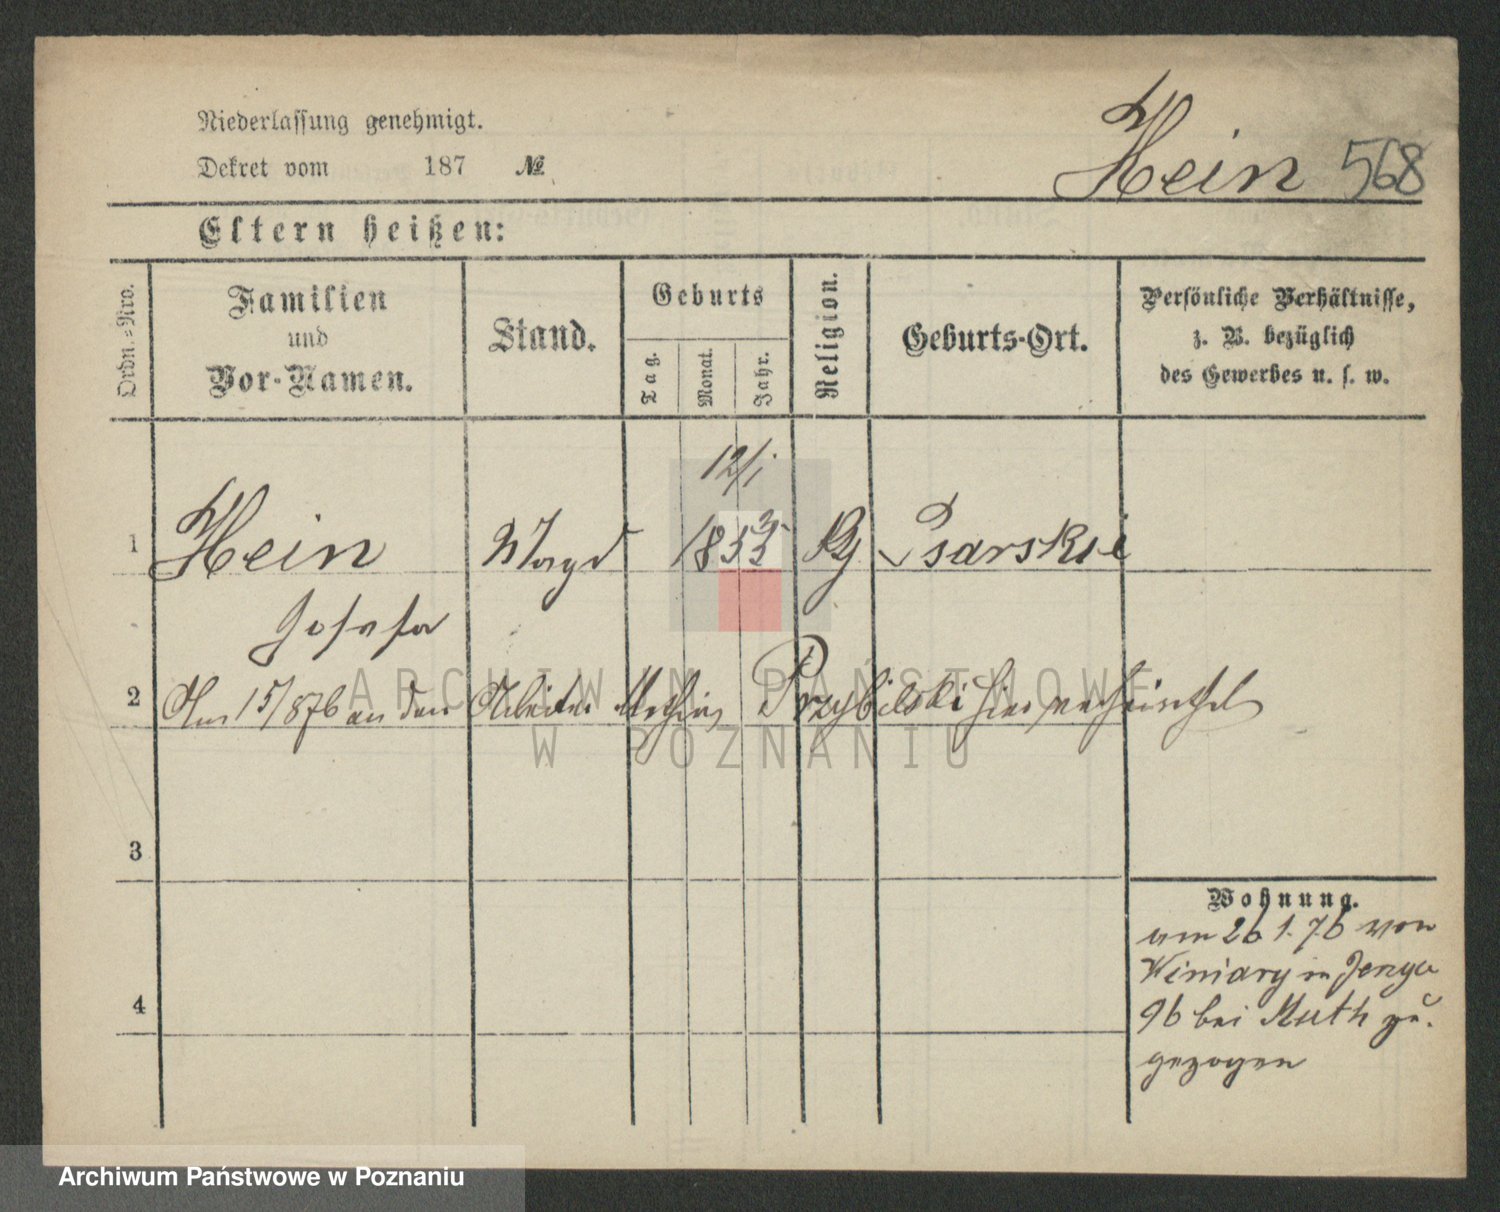 Niederlassung genehmigt.
Dekret vom 187 №
Hein 568
Eltern heißen:
Ordn.-Nro.
Familien
und
Vor-Namen.
Stand.
Geburts
Tag.
Monat.
Jahr.
Religion.
Geburts-Ort.
Persönliche Verhältnisse,
z. B. bezüglich
des Gewerbes u. s. w.
12/1
1 Hein Magd 1853 Psarskie
Josefa
2 Am 15/876 an den Arbeiter Przybilski hier verheirathet
3
4
Wohnung.
am 26 1. 76 von
Winiary n Jerzyce
96 bei Muth zu-
gezogen
ARCHIWUM PAŃSTWOWE
W POZNANIU
Archiwum Państwowe w Poznaniu